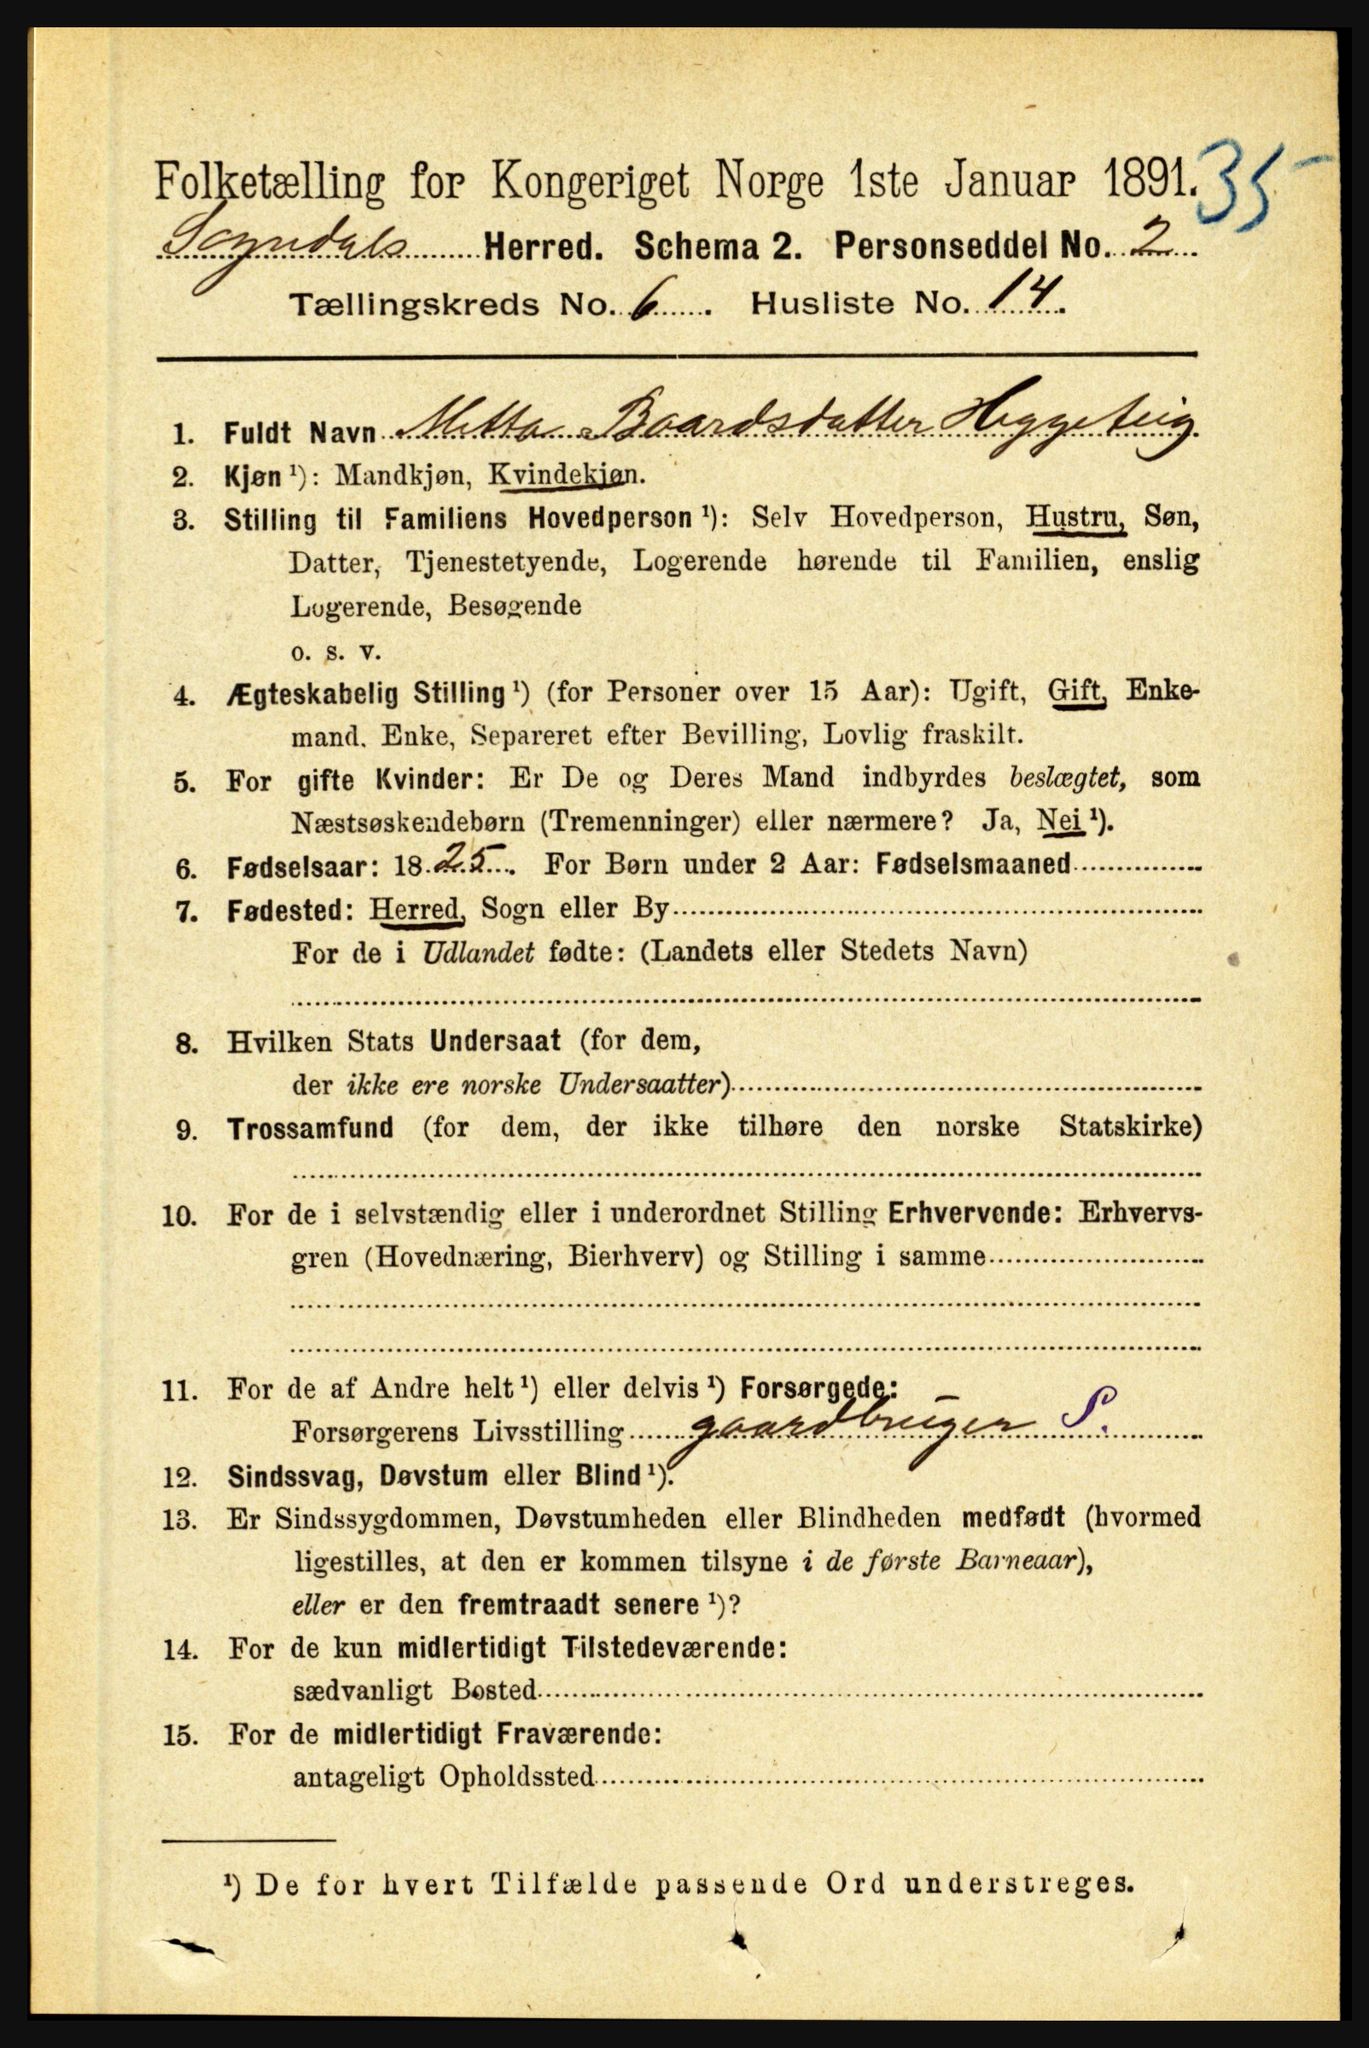 Folketælling for Kongeriget Norge 1ste Januar 1891. 35
Sogndals Herred. Schema 2. Personseddel No. 2
Tællingskreds No. 6. Husliste No. 14.
1. Fuldt Navn Metta Baardsdatter Heggeteig
2. Kjøn ¹): Mandkjøn, Kvindekjøn.
3. Stilling til Familiens Hovedperson ¹): Selv Hovedperson, Hustru, Søn,
Datter, Tjenestetyende, Logerende hørende til Familien, enslig
Logerende, Besøgende
o. s. v.
4. Ægteskabelig Stilling ¹) (for Personer over 15 Aar): Ugift, Gift, Enke-
mand, Enke, Separeret efter Bevilling, Lovlig fraskilt.
5. For gifte Kvinder: Er De og Deres Mand indbyrdes beslægtet, som
Næstsøskendebørn (Tremenninger) eller nærmere? Ja, Nei ¹).
6. Fødselsaar: 1825. For Børn under 2 Aar: Fødselsmaaned
7. Fødested: Herred, Sogn eller By
For de i Udlandet fødte: (Landets eller Stedets Navn)
8. Hvilken Stats Undersaat (for dem,
der ikke ere norske Undersaatter)
9. Trossamfund (for dem, der ikke tilhøre den norske Statskirke)
10. For de i selvstændig eller i underordnet Stilling Erhvervende: Erhvervs-
gren (Hovednæring, Bierhverv) og Stilling i samme
11. For de af Andre helt ¹) eller delvis ¹) Forsørgede:
Forsørgerens Livsstilling gaardbruger S.
12. Sindssvag, Døvstum eller Blind ¹).
13. Er Sindssygdommen, Døvstumheden eller Blindheden medfødt (hvormed
ligestilles, at den er kommen tilsyne i de første Barneaar),
eller er den fremtraadt senere ¹)?
14. For de kun midlertidigt Tilstedeværende:
sædvanligt Bosted
15. For de midlertidigt Fraværende:
antageligt Opholdssted
¹) De for hvert Tilfælde passende Ord understreges.